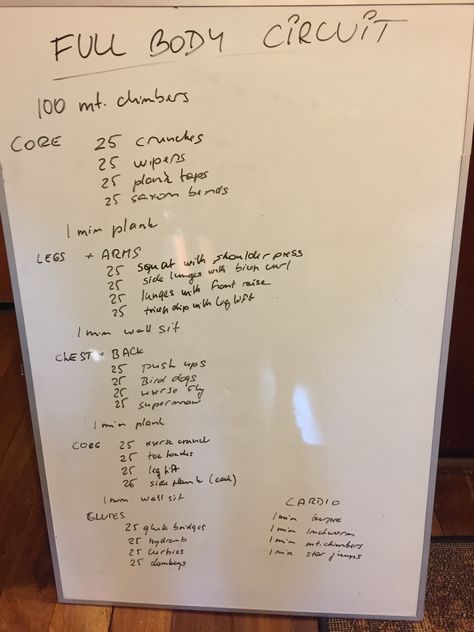 FULL BODY CIRCUIT
100 mt. climbers
CORE 25 crunches
25 wipers
25 plank taps
25 saxon bends
1 min plank
LEGS + ARMS
25 squat with shoulder press
25 side lunges with bicep curl
25 lunges with front raise
25 tricep dip with leg lift
1 min wall sit
CHEST + BACK
25 push ups
25 Bird dogs
25 fly
25 superman
1 min plank
CORE 25 crunch
25 toe touches
25 leg lift
25 side plank (each)
1 min wall sit
GLUTES
25 glute bridges
25 hydrants
25
25 donkeys
CARDIO
1 min burpee
1 min inchworm
1 min mt. climbers
1 min star jumps